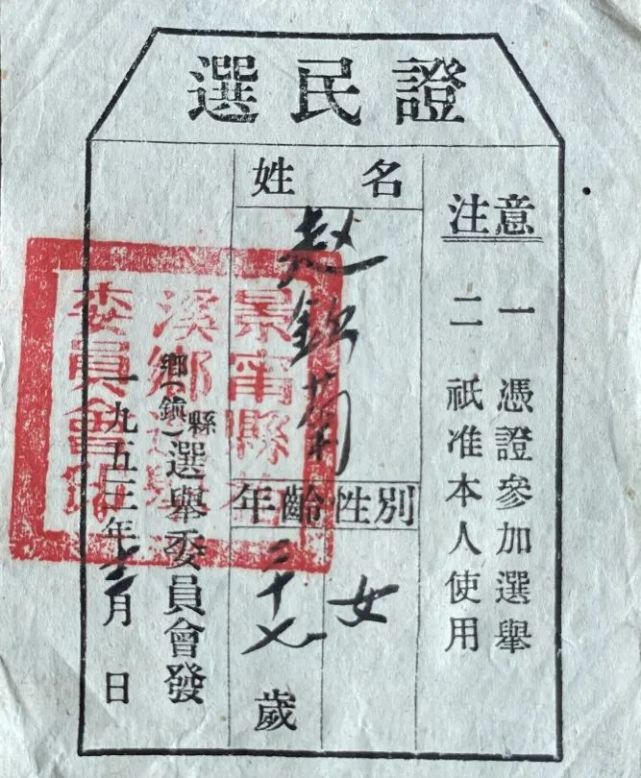 選民證
注意
一 憑證參加選舉
二 祇准本人使用
姓名
赵
性別
女
年齡
二十七歲
縣
鄉(鎮)選舉委員會發
一九五三年十二月 日
景甯縣
溪鄉選舉
委員會印